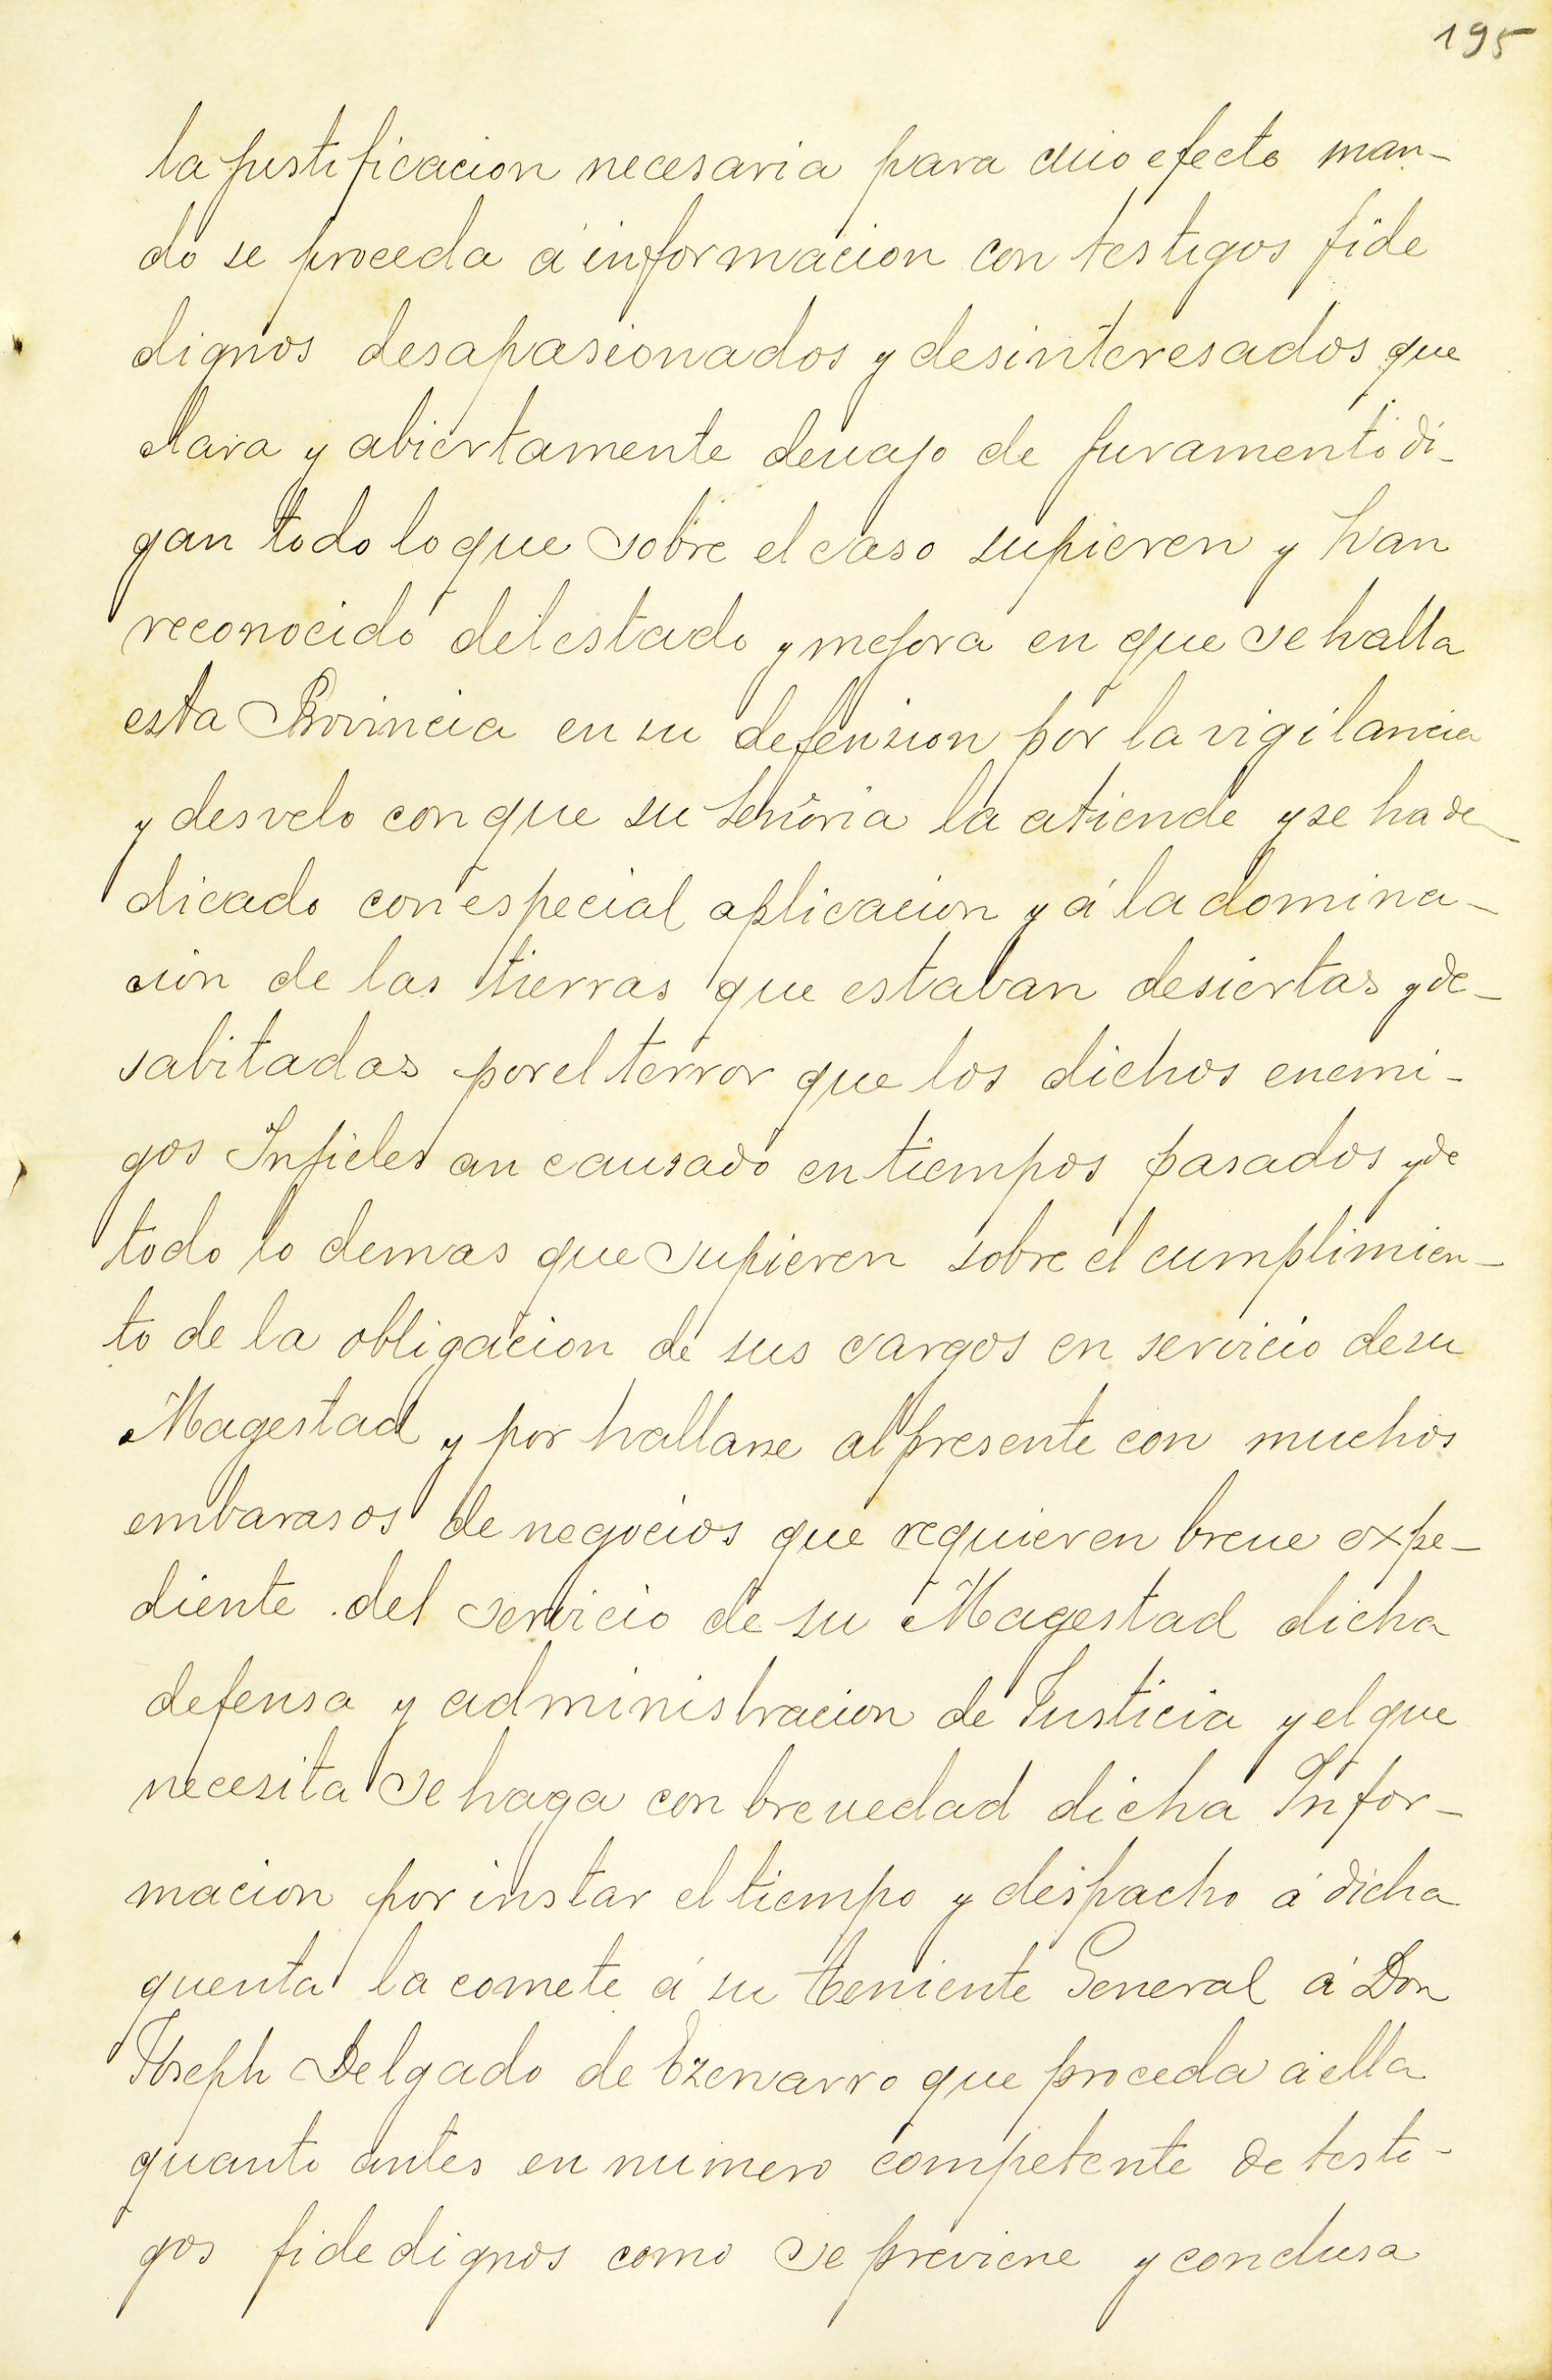 195
la justificacion necesaria para cuio efecto man-
do se proceda á informacion con testigos fide
dignos desapasionados y desinteresados que
clara y abiertamente deuajo de juramento di-
gan todo lo que sobre el caso supieren y han
reconocido del estado y mejora en que se halla
esta Provincia en su defension por la vigilancia
y desvelo con que su señoria la atiende y se ha de
dicado con especial aplicacion y á la domina-
cion de las tierras que estaban desiertas y de-
sabitadas por el terror que los dichos enemi-
gos Infieles an causado en tiempos pasados y de
todo lo demas que supieren sobre el cumplimien-
to de la obligacion de sus cargos en servicio de su
Magestad y por hallarse al presente con muchos
embarasos de negocios que requieren breue expe-
diente del servicio de su Magestad dicha
defensa y administracion de Justicia y el que
necesita se haga con breuedad dicha Infor-
macion por instar el tiempo y despacho á dicha
quenta la comete á su teniente General á Don
Joseph Delgado de Ezenarro que proceda á ella
quanto antes en numero competente de testi-
gos fidedignos como se previene y conclusa